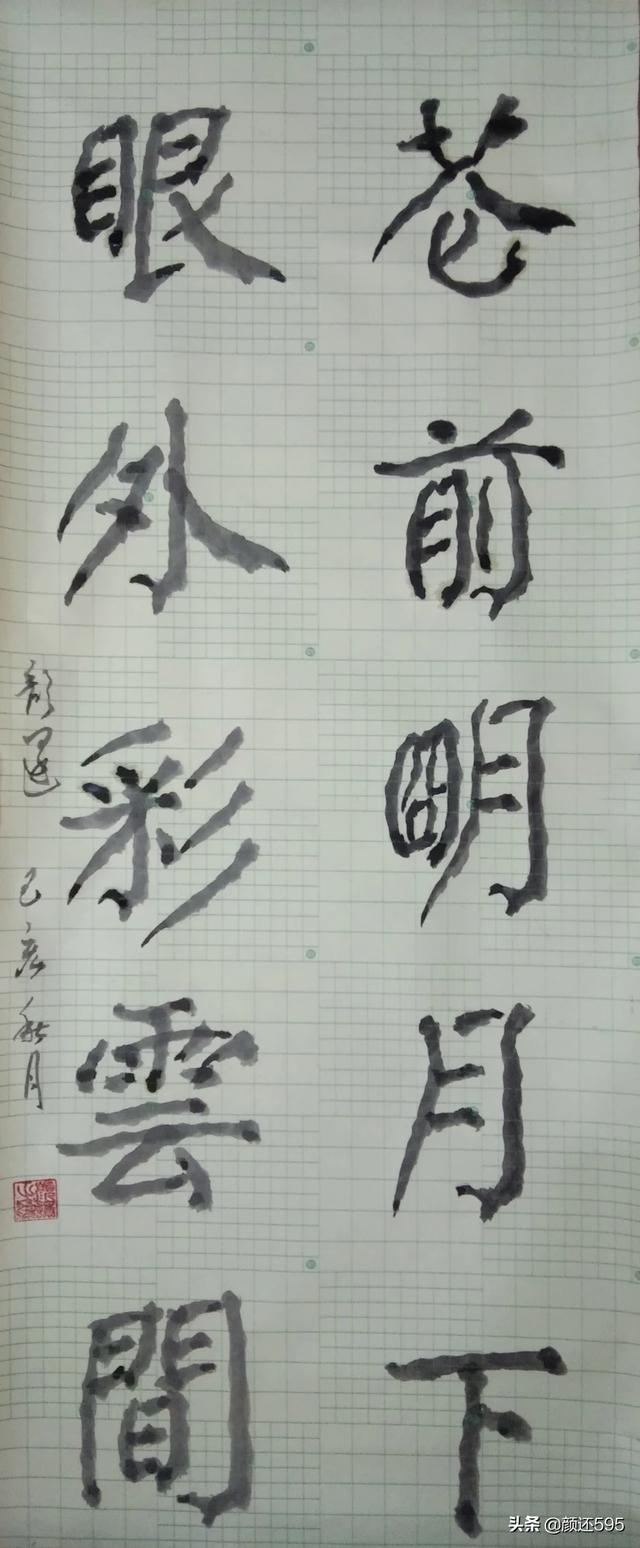 花前明月下
眼外彩雲間
顏還 己亥秋月
头条 @颜还595